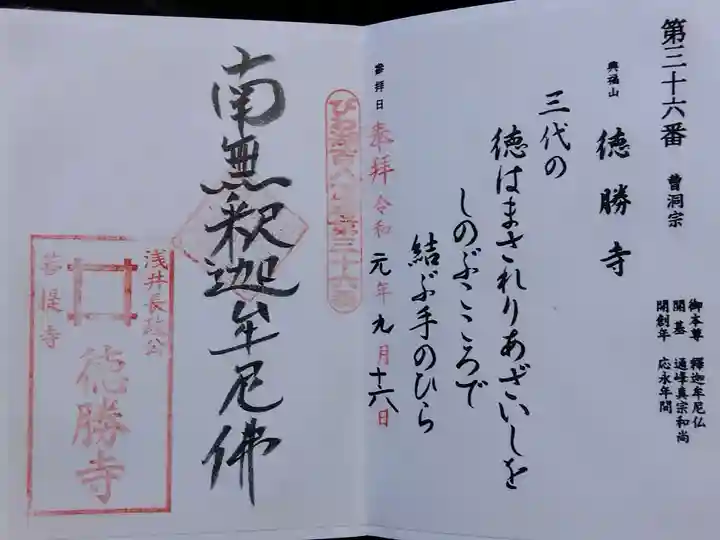 第三十六番 曹洞宗
御本尊 釋迦牟尼仏
開基 通峰真宗和尚
開創年 応永年間
興福山 徳勝寺
三代の
徳はまされりあざいしを
しのぶこころで
結ぶ手のひら
參拝日 奉拝 令和元年九月十六日
びわ湖百八霊場第三十六番
南無釈迦牟尼佛
浅井長政公
菩提寺
徳勝寺